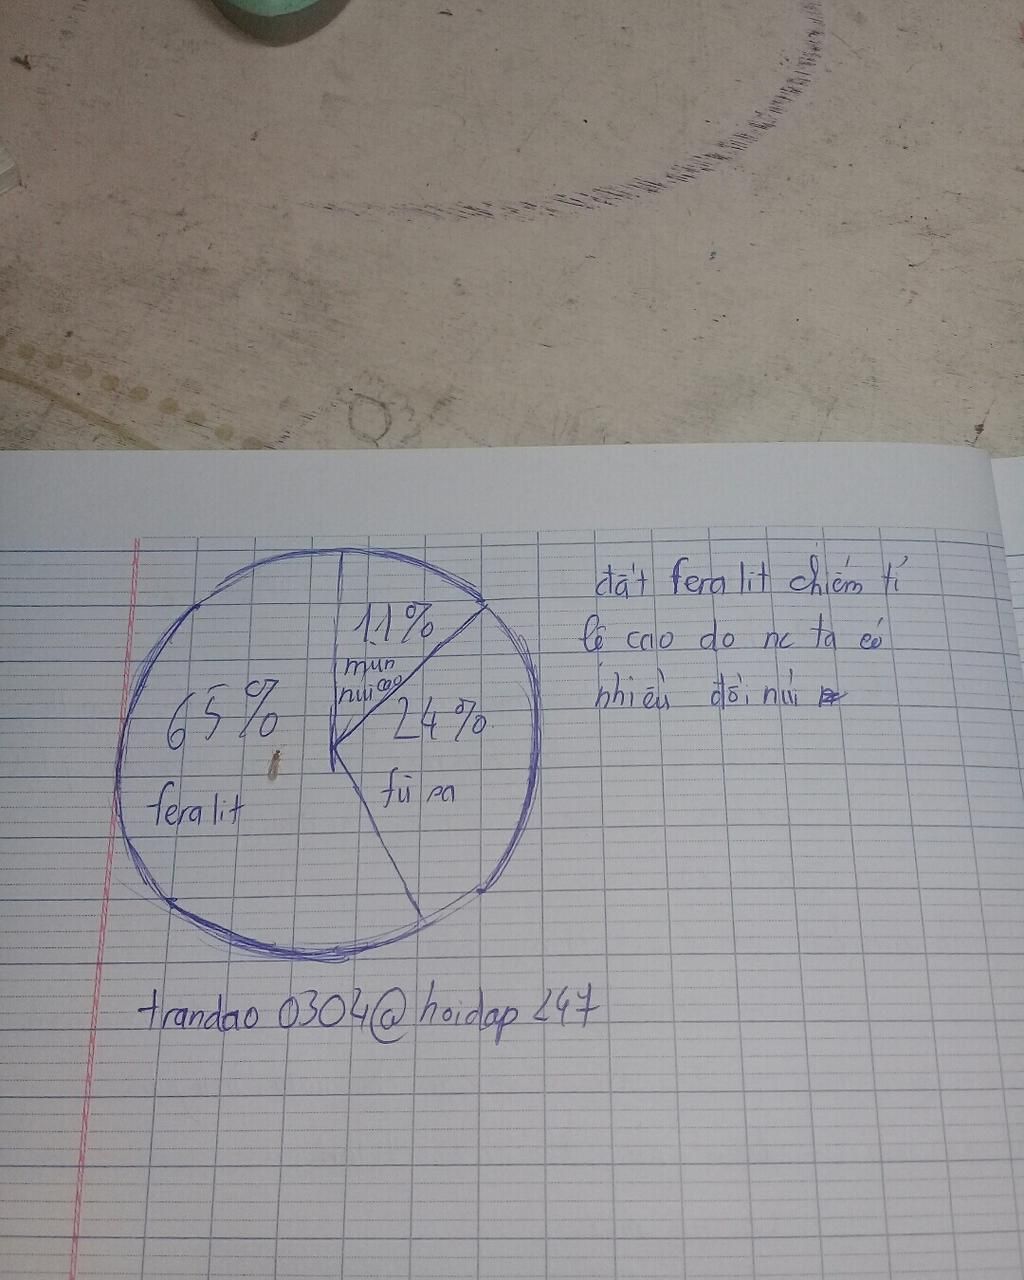 11%
mùn
núi cao
65%
24%
feralit
fù sa
đất feralit chiếm tỉ
lệ cao do nc ta có
nhiều đồi núi
trandao 0304@hoidap 247